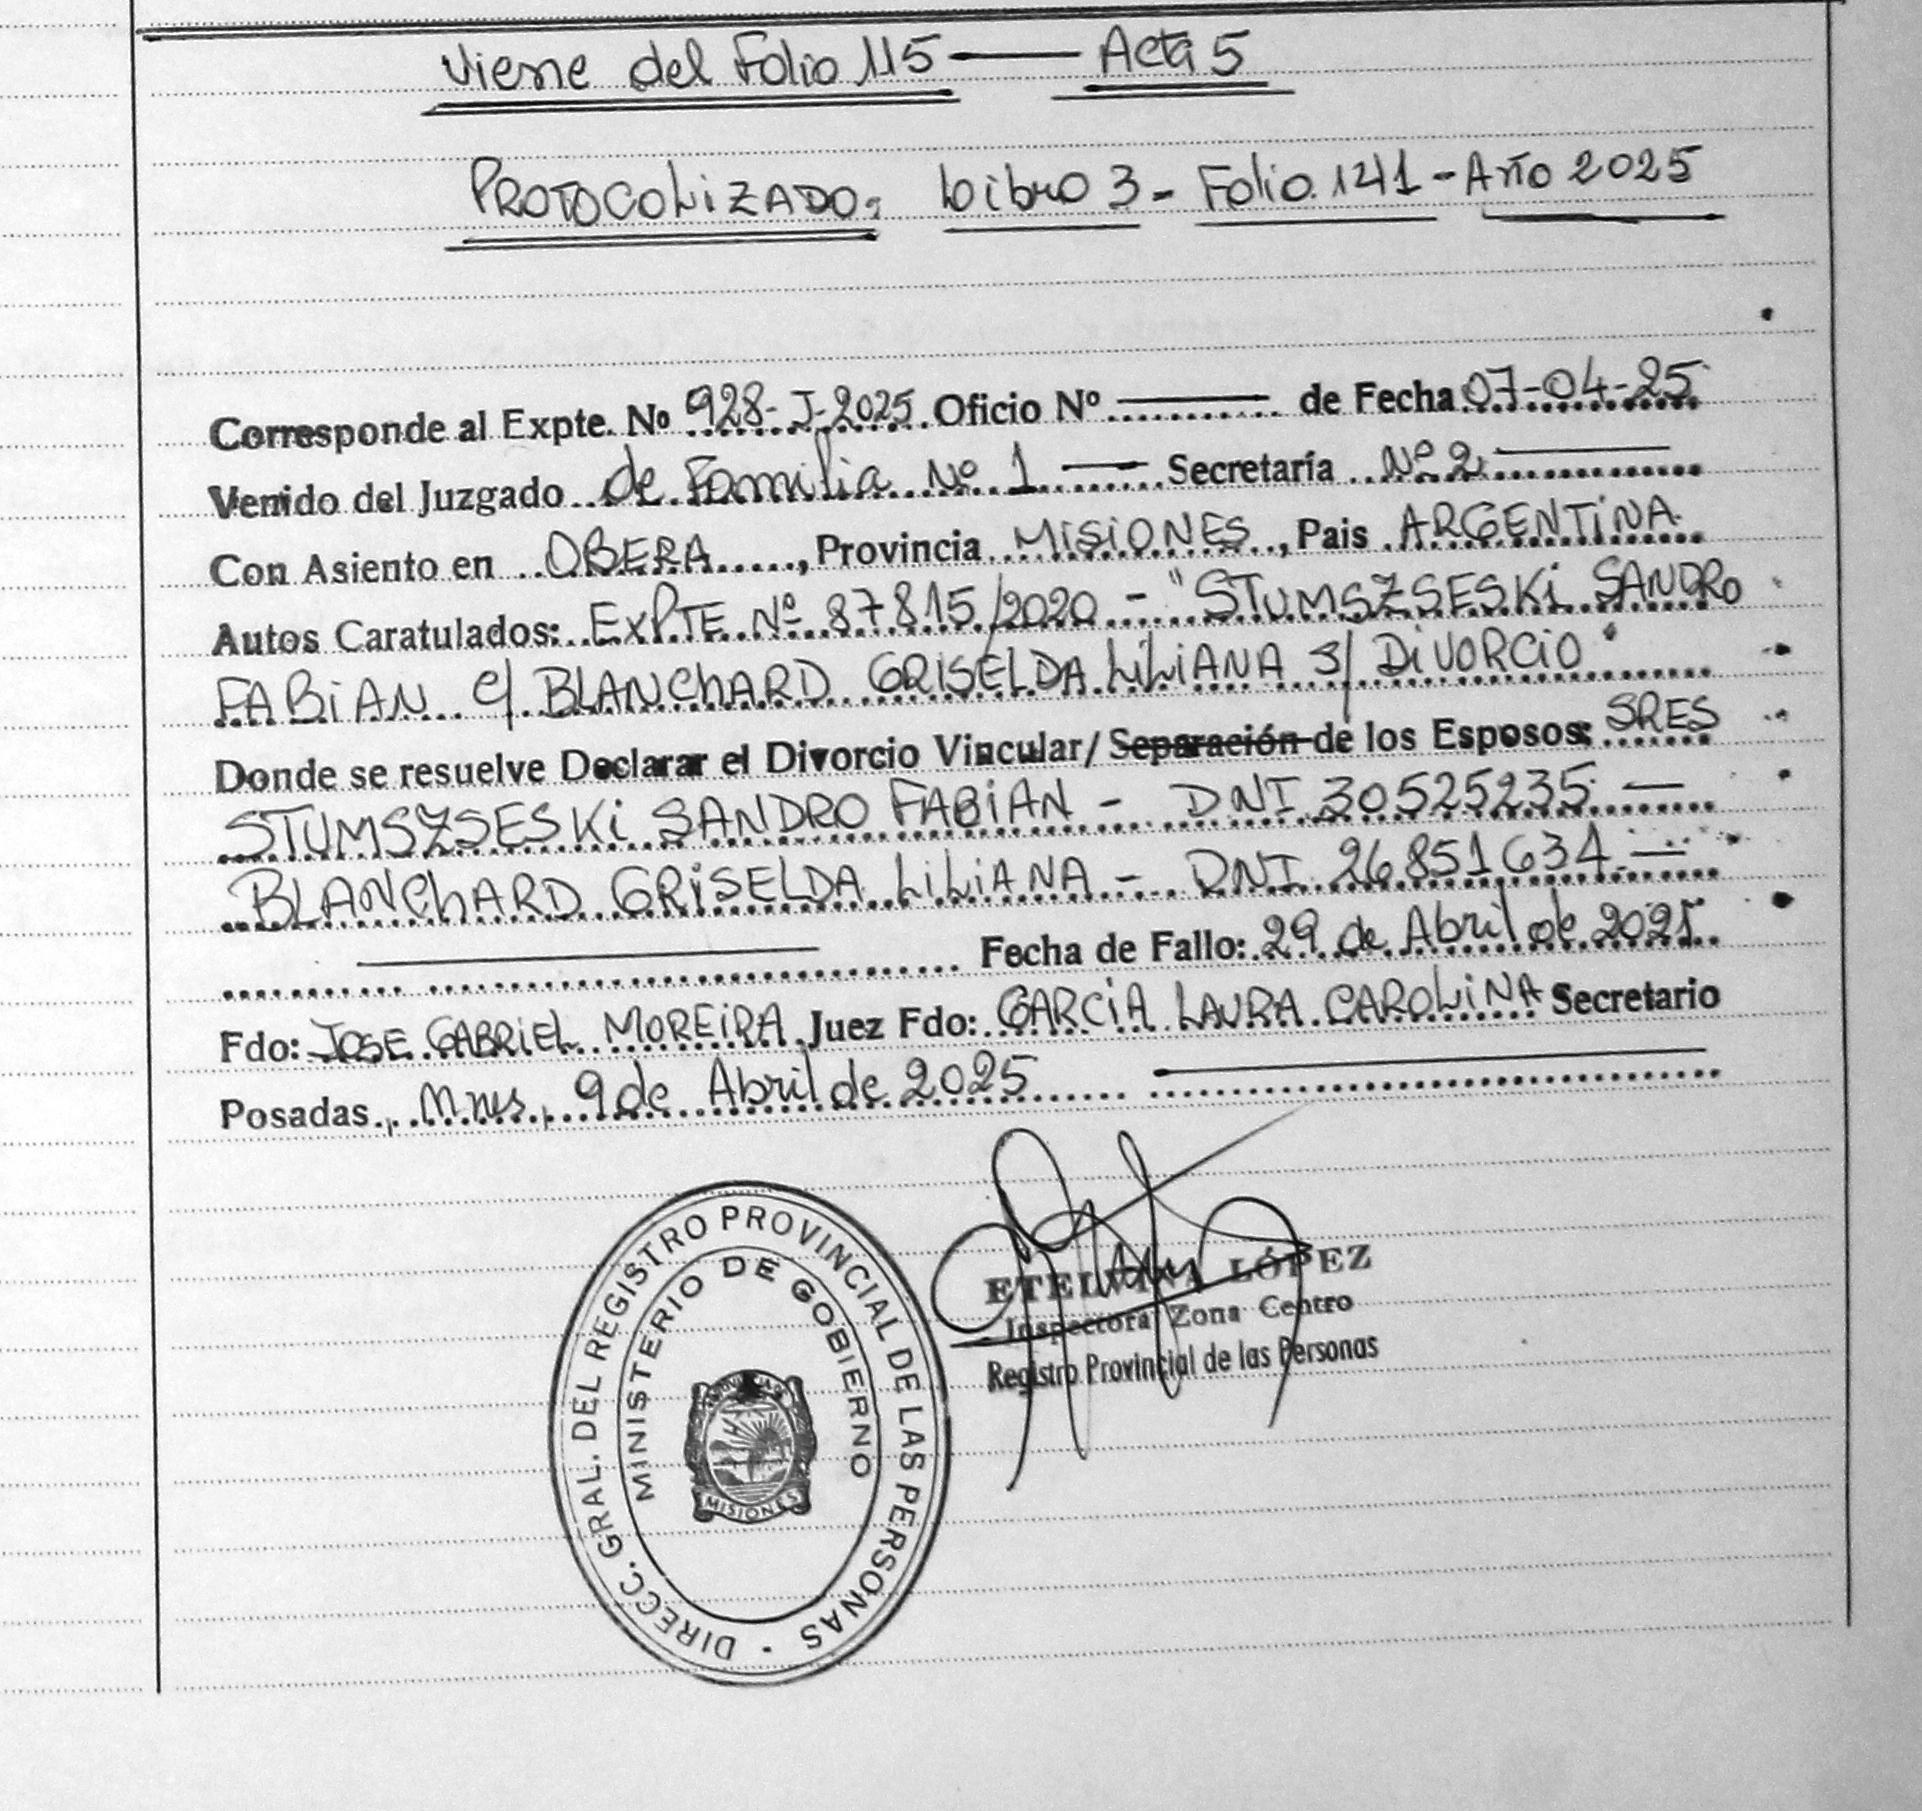 Viene del Folio 115 — Acta 5
PROTOCOLIZADO: Libro 3 - Folio 1241 - Año 2025
Corresponde al Expte. Nº 928-J-2025 Oficio Nº ——— de Fecha 07-04-25
Venido del Juzgado de Familia Nº 1 — Secretaría Nº 2 ———
Con Asiento en OBERA, Provincia MISIONES, Pais ARGENTINA
Autos Caratulados: EXPTE Nº 87815/2020 - "STUMSZSESKI SANDRO
FABIAN C/ BLANCHARD GRISELDA LILIANA S/ DIVORCIO"
Donde se resuelve Declarar el Divorcio Vincular/ Separación de los Esposos: SRES
STUMSZSESKI SANDRO FABIAN - DNI 30525235 —
BLANCHARD GRISELDA LILIANA - DNI 26851634 —
——— Fecha de Fallo: 29 de Abril de 2021
Fdo: JOSE GABRIEL MOREIRA Juez Fdo: GARCIA LAURA CAROLINA Secretario
Posadas, Mnes, 9 de Abril de 2025 ———
DIRECC. GRAL. DEL REGISTRO PROVINCIAL DE LAS PERSONAS
MINISTERIO DE GOBIERNO
MISIONES
ETELVINA LÓPEZ
Inspectora Zona Centro
Registro Provincial de las Personas